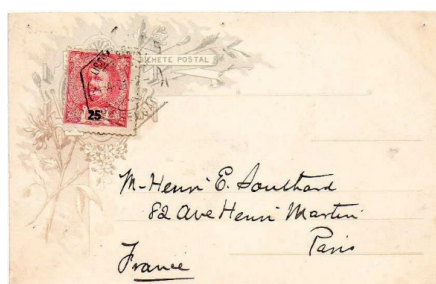 BILHETE POSTAL
25
M. Henri E. Southard
82 Ave Henri Martin
Paris
France